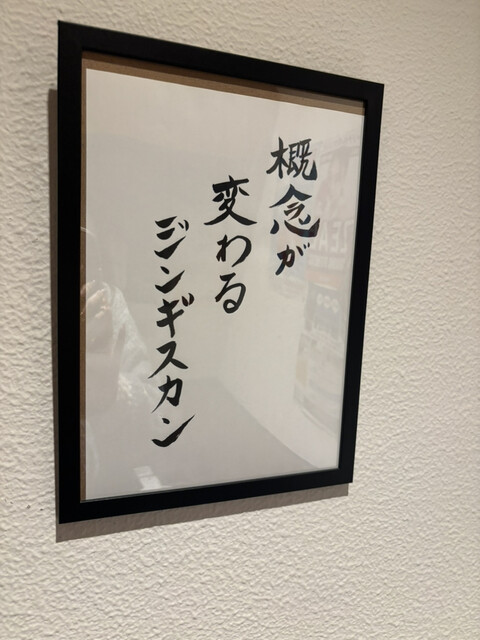 概念が
変わる
ジンギスカン